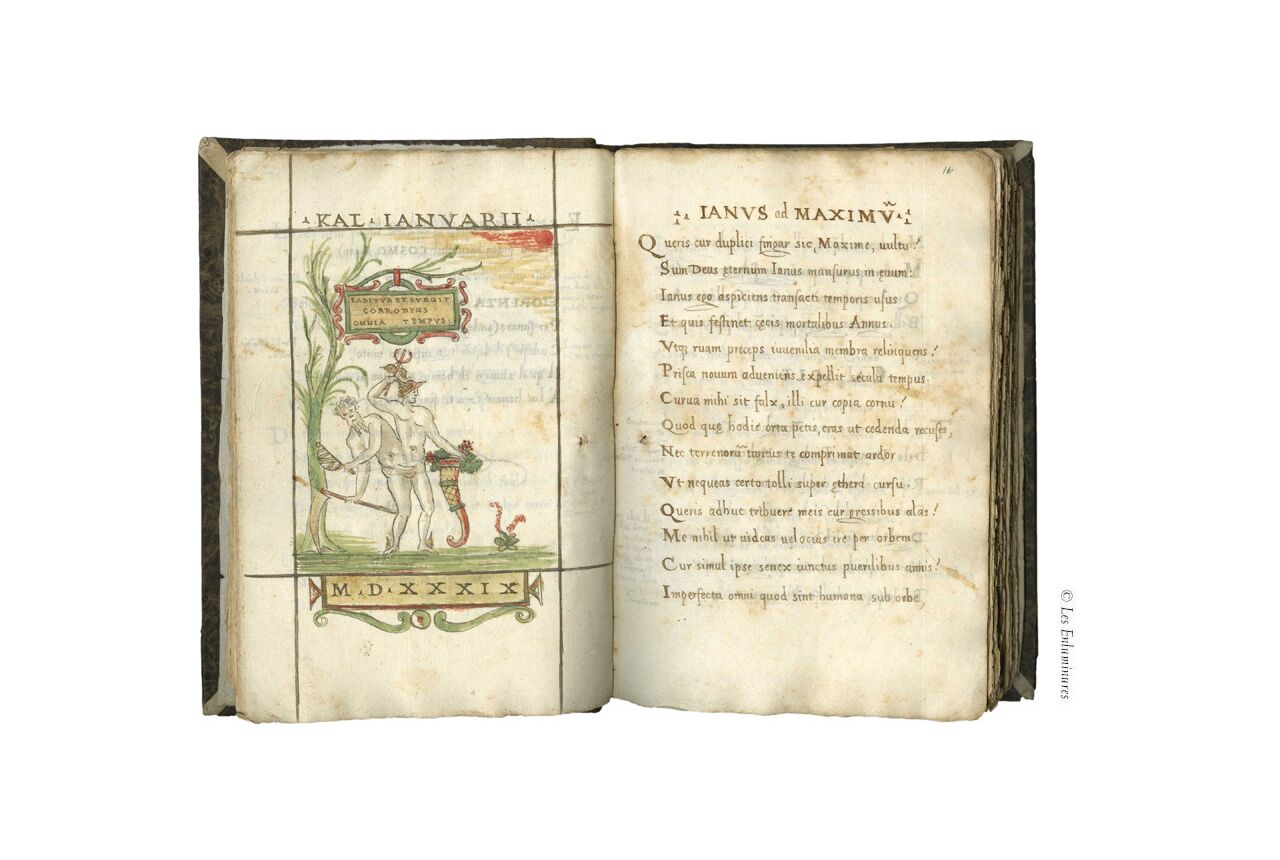 ·KAL·IANVARII·
LABITVR ET SVRGIT
CORRODENS
OMNIA TEMPVS·
M·D·XXXIX
16
IANVS ad MAXIMṼ
Queris cur duplici fingar sic, Maxime, uultu?
Sum Deus ęternum Ianus mansurus in ęuum:
Ianus ego aspiciens transacti temporis usus
Et quis festinet cęcis mortalibus Annus.
Vtq; ruam preceps iuuenilia membra relinquens?
Prisca nouum adueniens expellit secula tempus.
Curua mihi sit falx, illi cur copia cornu?
Quod quę hodie orta petis, cras ut cedenda recuses,
Nec terrenorũ te comprimat ardor
Vt nequeas certo tolli super ęthera cursu.
Queris adhuc tribuere meis cur gressibus alas?
Me nihil ut uideas uelocius ire per orbem.
Cur simul ipse senex iunctus puerilibus annis?
Imperfecta omni quod sint humana sub orbe,
© Les Enluminures